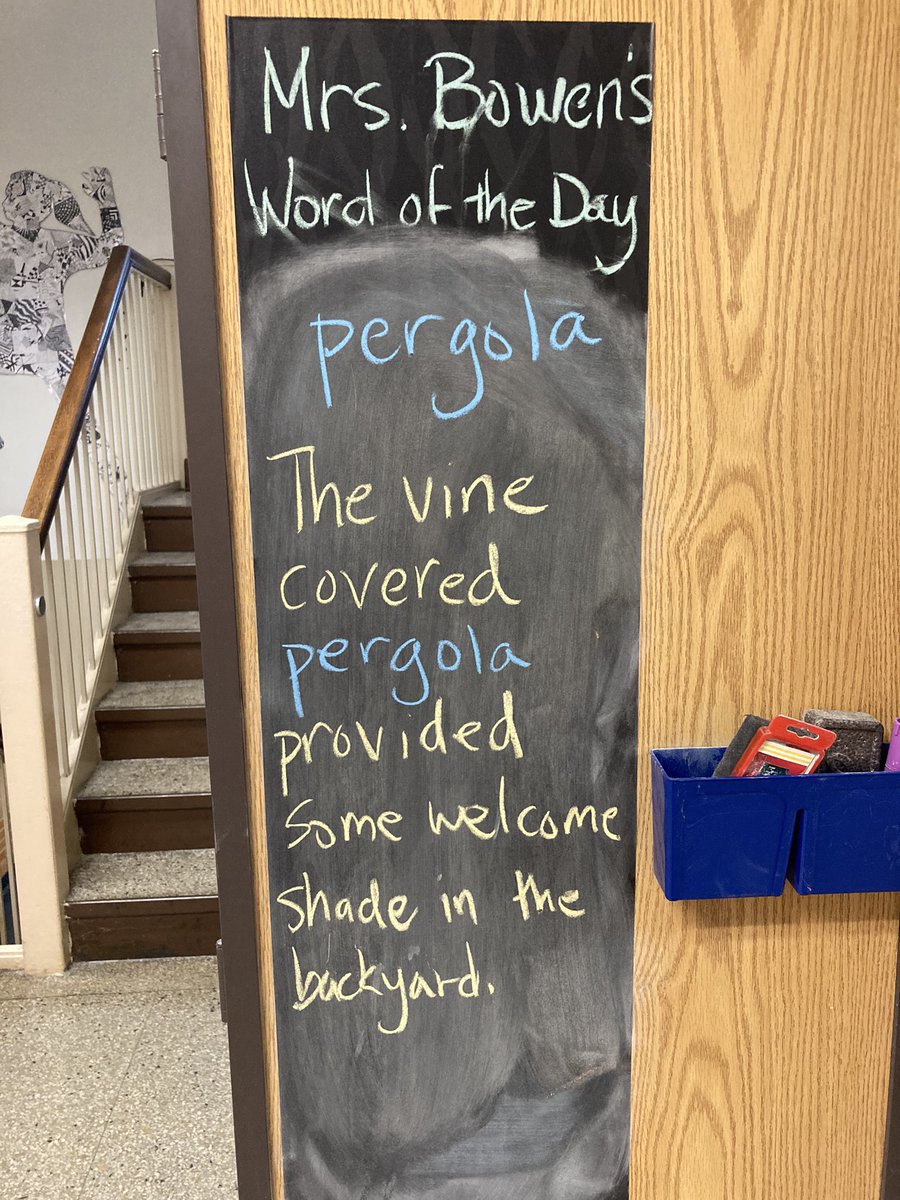 Mrs. Bowen's
Word of the Day
pergola
The vine
covered
pergola
provided
some welcome
shade in the
backyard.